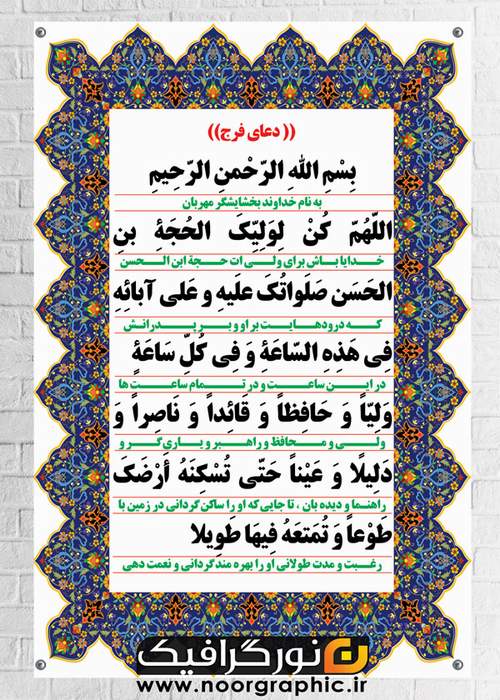 (( دعای فرج))
بِسْمِ اللهِ الرّحْمنِ الرّحِیمِ
به نام خداوند بخشایشگر مهربان
اللّهُمّ کُنْ لِوَلِیّکَ الحُجَةِ بنِ
خدایا باش برای ولی ات حجة ابن الحسن
الحَسَن صَلَواتُکَ عَلَیهِ و عَلی آبائِهِ
که درودهایت بر او و بر پدرانش
فِی هَذِهِ السّاعَةِ وَ فِی کُلِّ سَاعَةٍ
در این ساعت و در تمام ساعت ها
وَلِیّاً وَ حَافِظاً وَ قَائِداً وَ نَاصِراً وَ
ولی و محافظ و راهبر و یاری گر و
دَلِیلًا وَ عَیْناً حَتّی تُسْکِنَهُ أرْضَکَ
راهنما و دیده بان ، تا جایی که او را ساکن گردانی در زمین با
طَوْعاً وَ تُمَتعَهُ فِیهَا طَوِیلا
رغبت و مدت طولانی او را بهره مند گردانی و نعمت دهی
نورگرافیک
www.noorgraphic.ir